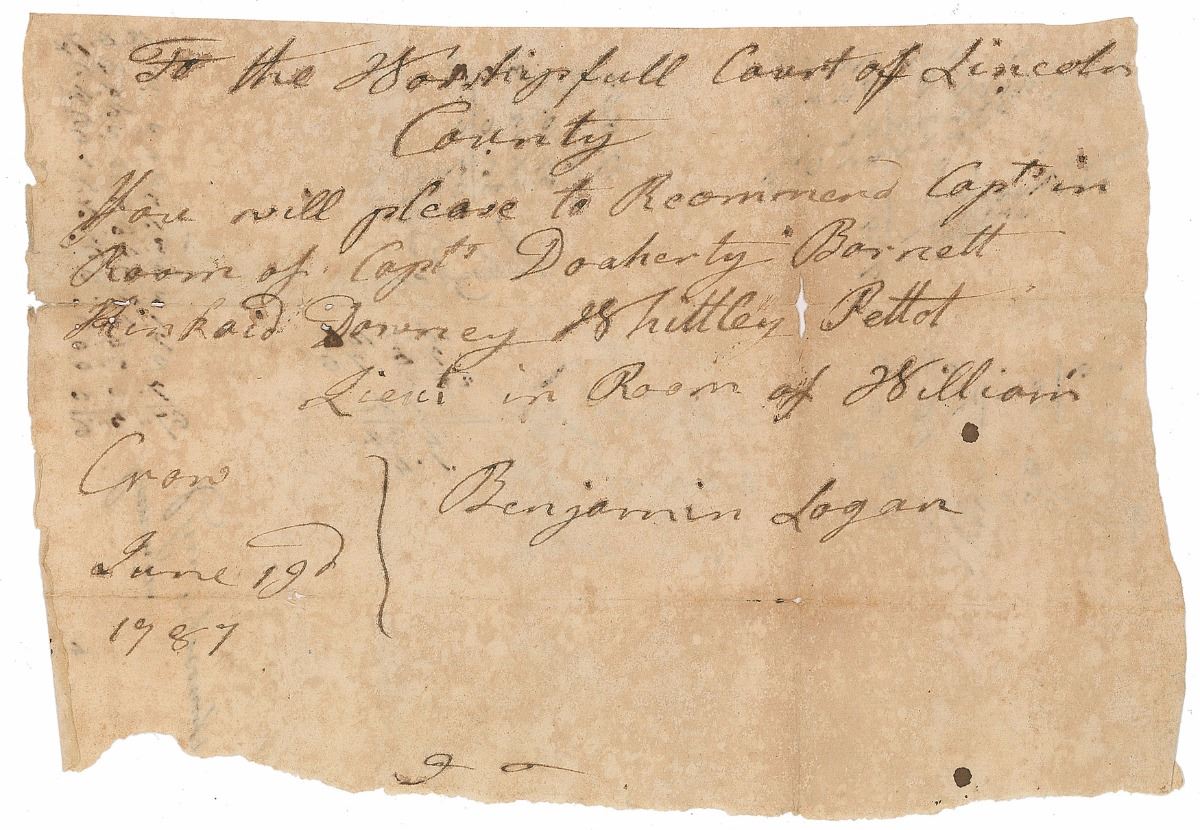 To the Worshipfull Court of Lincoln
County
You will please to Recommend Capts in
Room of Capts Doaherty Barnett
Kinkaid Downey Whittley Pettot
Lieut in Room of William
Crow
Benjamin Logan
June 19d
1787